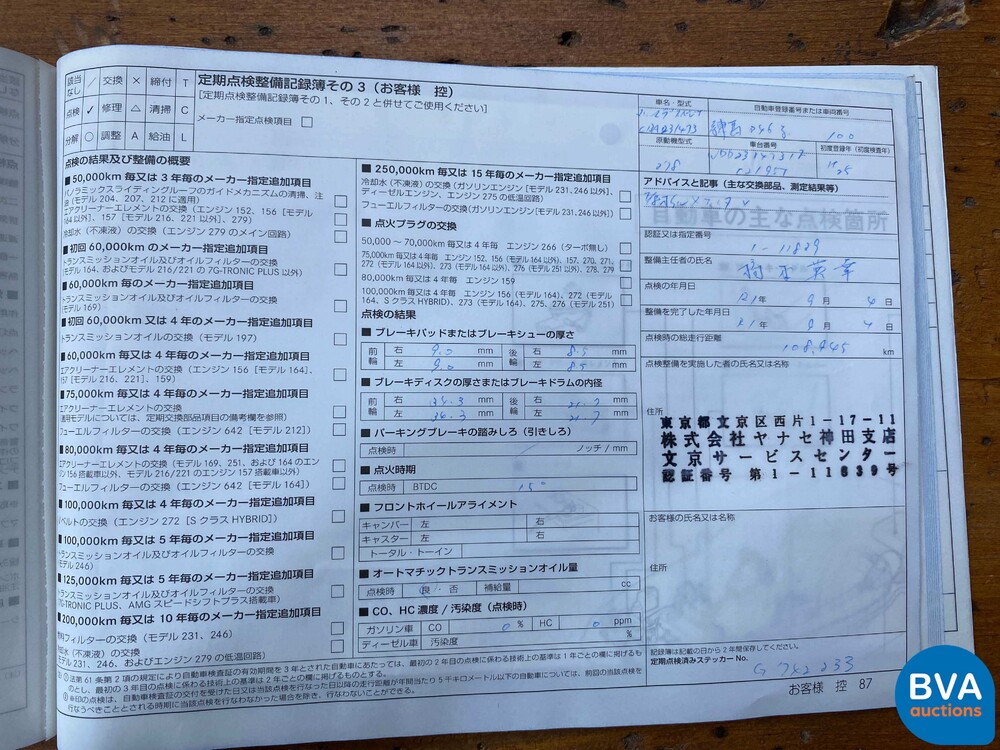 該当なし ／ 交換 × 締付 T
点検 ✓ 修理 △ 清掃 C
分解 ○ 調整 A 給油 L
定期点検整備記録簿その３（お客様 控）
[定期点検整備記録簿その１、その２と併せてご使用ください]
メーカー指定点検項目 □
点検の結果及び整備の概要
■50,000km 毎又は３年毎のメーカー指定追加項目
パノラミックスライディングルーフのガイドメカニズムの清掃、注
油（モデル 204、207、212 に適用）
エアクリーナーエレメントの交換（エンジン 152、156［モデル
164 以外］、157［モデル 216、221 以外］、279）
冷却水（不凍液）の交換（エンジン 279 のメイン回路）
■初回 60,000km のメーカー指定追加項目
トランスミッションオイル及びオイルフィルターの交換
（モデル 164、およびモデル 216/221 の 7G-TRONIC PLUS 以外）
■60,000km 毎のメーカー指定追加項目
トランスミッションオイル及びオイルフィルターの交換
（モデル 169）
■初回 60,000km 又は４年のメーカー指定追加項目
トランスミッションオイルの交換（モデル 197）
■60,000km 毎又は４年毎のメーカー指定追加項目
エアクリーナーエレメントの交換（エンジン 156［モデル 164］、
157［モデル 216、221］、159）
■75,000km 毎又は４年毎のメーカー指定追加項目
エアクリーナーエレメントの交換
（適用モデルについては、定期交換部品項目の備考欄を参照）
フューエルフィルターの交換（エンジン 642［モデル 212］）
■80,000km 毎又は４年毎のメーカー指定追加項目
エアクリーナーエレメントの交換（モデル 169、251、および 164 のエン
ジン156 搭載車以外、モデル 216/221 のエンジン 157 搭載車以外）
フューエルフィルターの交換（エンジン 642［モデル 164］）
■100,000km 毎又は４年毎のメーカー指定追加項目
Vベルトの交換（エンジン 272［S クラス HYBRID］）
■100,000km 毎又は５年毎のメーカー指定追加項目
トランスミッションオイル及びオイルフィルターの交換
（モデル 246）
■125,000km 毎又は５年毎のメーカー指定追加項目
トランスミッションオイル及びオイルフィルターの交換
（7G-TRONIC PLUS、AMG スピードシフトプラス搭載車）
■200,000km 毎又は 10 年毎のメーカー指定追加項目
燃料フィルターの交換（モデル 231、246）
冷却水（不凍液）の交換
（モデル 231、246、およびエンジン 279 の低温回路）
■250,000km 毎又は 15 年毎のメーカー指定追加項目
冷却水（不凍液）の交換（ガソリンエンジン［モデル 231、246 以外］、
ディーゼルエンジン、エンジン 275 の低温回路）
フューエルフィルターの交換（ガソリンエンジン［モデル 231、246 以外］）
■点火プラグの交換
50,000 ～ 70,000km 毎又は４年毎 エンジン 266（ターボ無し）
75,000km 毎又は４年毎 エンジン 152、156（モデル 164 以外）、157、270、271、
272（モデル 164 以外）、273（モデル 164 以外）、276（モデル 251 以外）、278、279
80,000km 毎又は４年毎 エンジン 159
100,000km 毎又は４年毎 エンジン 156（モデル 164）、272（モデル
164、S クラス HYBRID）、273（モデル 164）、275、276（モデル 251）
点検の結果
■ブレーキパッドまたはブレーキシューの厚さ
前輪 右 9.0 mm 後輪 右 8.5 mm
左 9.0 mm 左 8.5 mm
■ブレーキディスクの厚さまたはブレーキドラムの内径
前輪 右 mm 後輪 右 21.7 mm
左 mm 左 21.7 mm
■パーキングブレーキの踏みしろ（引きしろ）
点検時 ノッチ / mm
■点火時期
点検時 BTDC 15°
■フロントホイールアライメント
キャンバー 左 右
キャスター 左 右
トータル・トーイン
■オートマチックトランスミッションオイル量
点検時 良 否 補給量 cc
■CO、HC 濃度 / 汚染度（点検時）
ガソリン車 CO 0 % HC 0 ppm
ディーゼル車 汚染度 %
車名・型式 自動車登録番号または車両番号
練馬 100
原動機型式 車台番号 初度登録年（初度検査年）
278
アドバイスと記事（主な交換部品、測定結果等）
自動車の主な点検箇所
認証又は指定番号
1-11839
整備主任者の氏名
点検の年月日
R1年 9月 4日
整備を完了した年月日
R1年 9月 4日
点検時の総走行距離
108,445 km
点検整備を実施した者の氏名又は名称
住所
東京都文京区西片1-17-11
株式会社ヤナセ神田支店
文京サービスセンター
認証番号 第1-11639号
お客様の氏名又は名称
住所
記録簿は記載の日から２年間保存してください。
定期点検済みステッカー No.
G 742233
① 法第 61 条第２項の規定により自動車検査証の有効期間を３年とされた自動車にあたっては、最初の２年目の点検に係わる技術上の基準は１年ごとの欄に掲げるも
のとし、最初の３年目の点検に係わる技術上の基準は２年ごとの欄に掲げるものとする。
② ※印の点検は、自動車検査証の交付を受けた日又は当該点検を行なった日以降の走行距離が年間当たり５千キロメートル以下の自動車については、前回の当該点検を
行なうべきこととされる時期に当該点検を行なわなかった場合を除き、行なわないことができる。
お客様 控 87
BVA
auctions